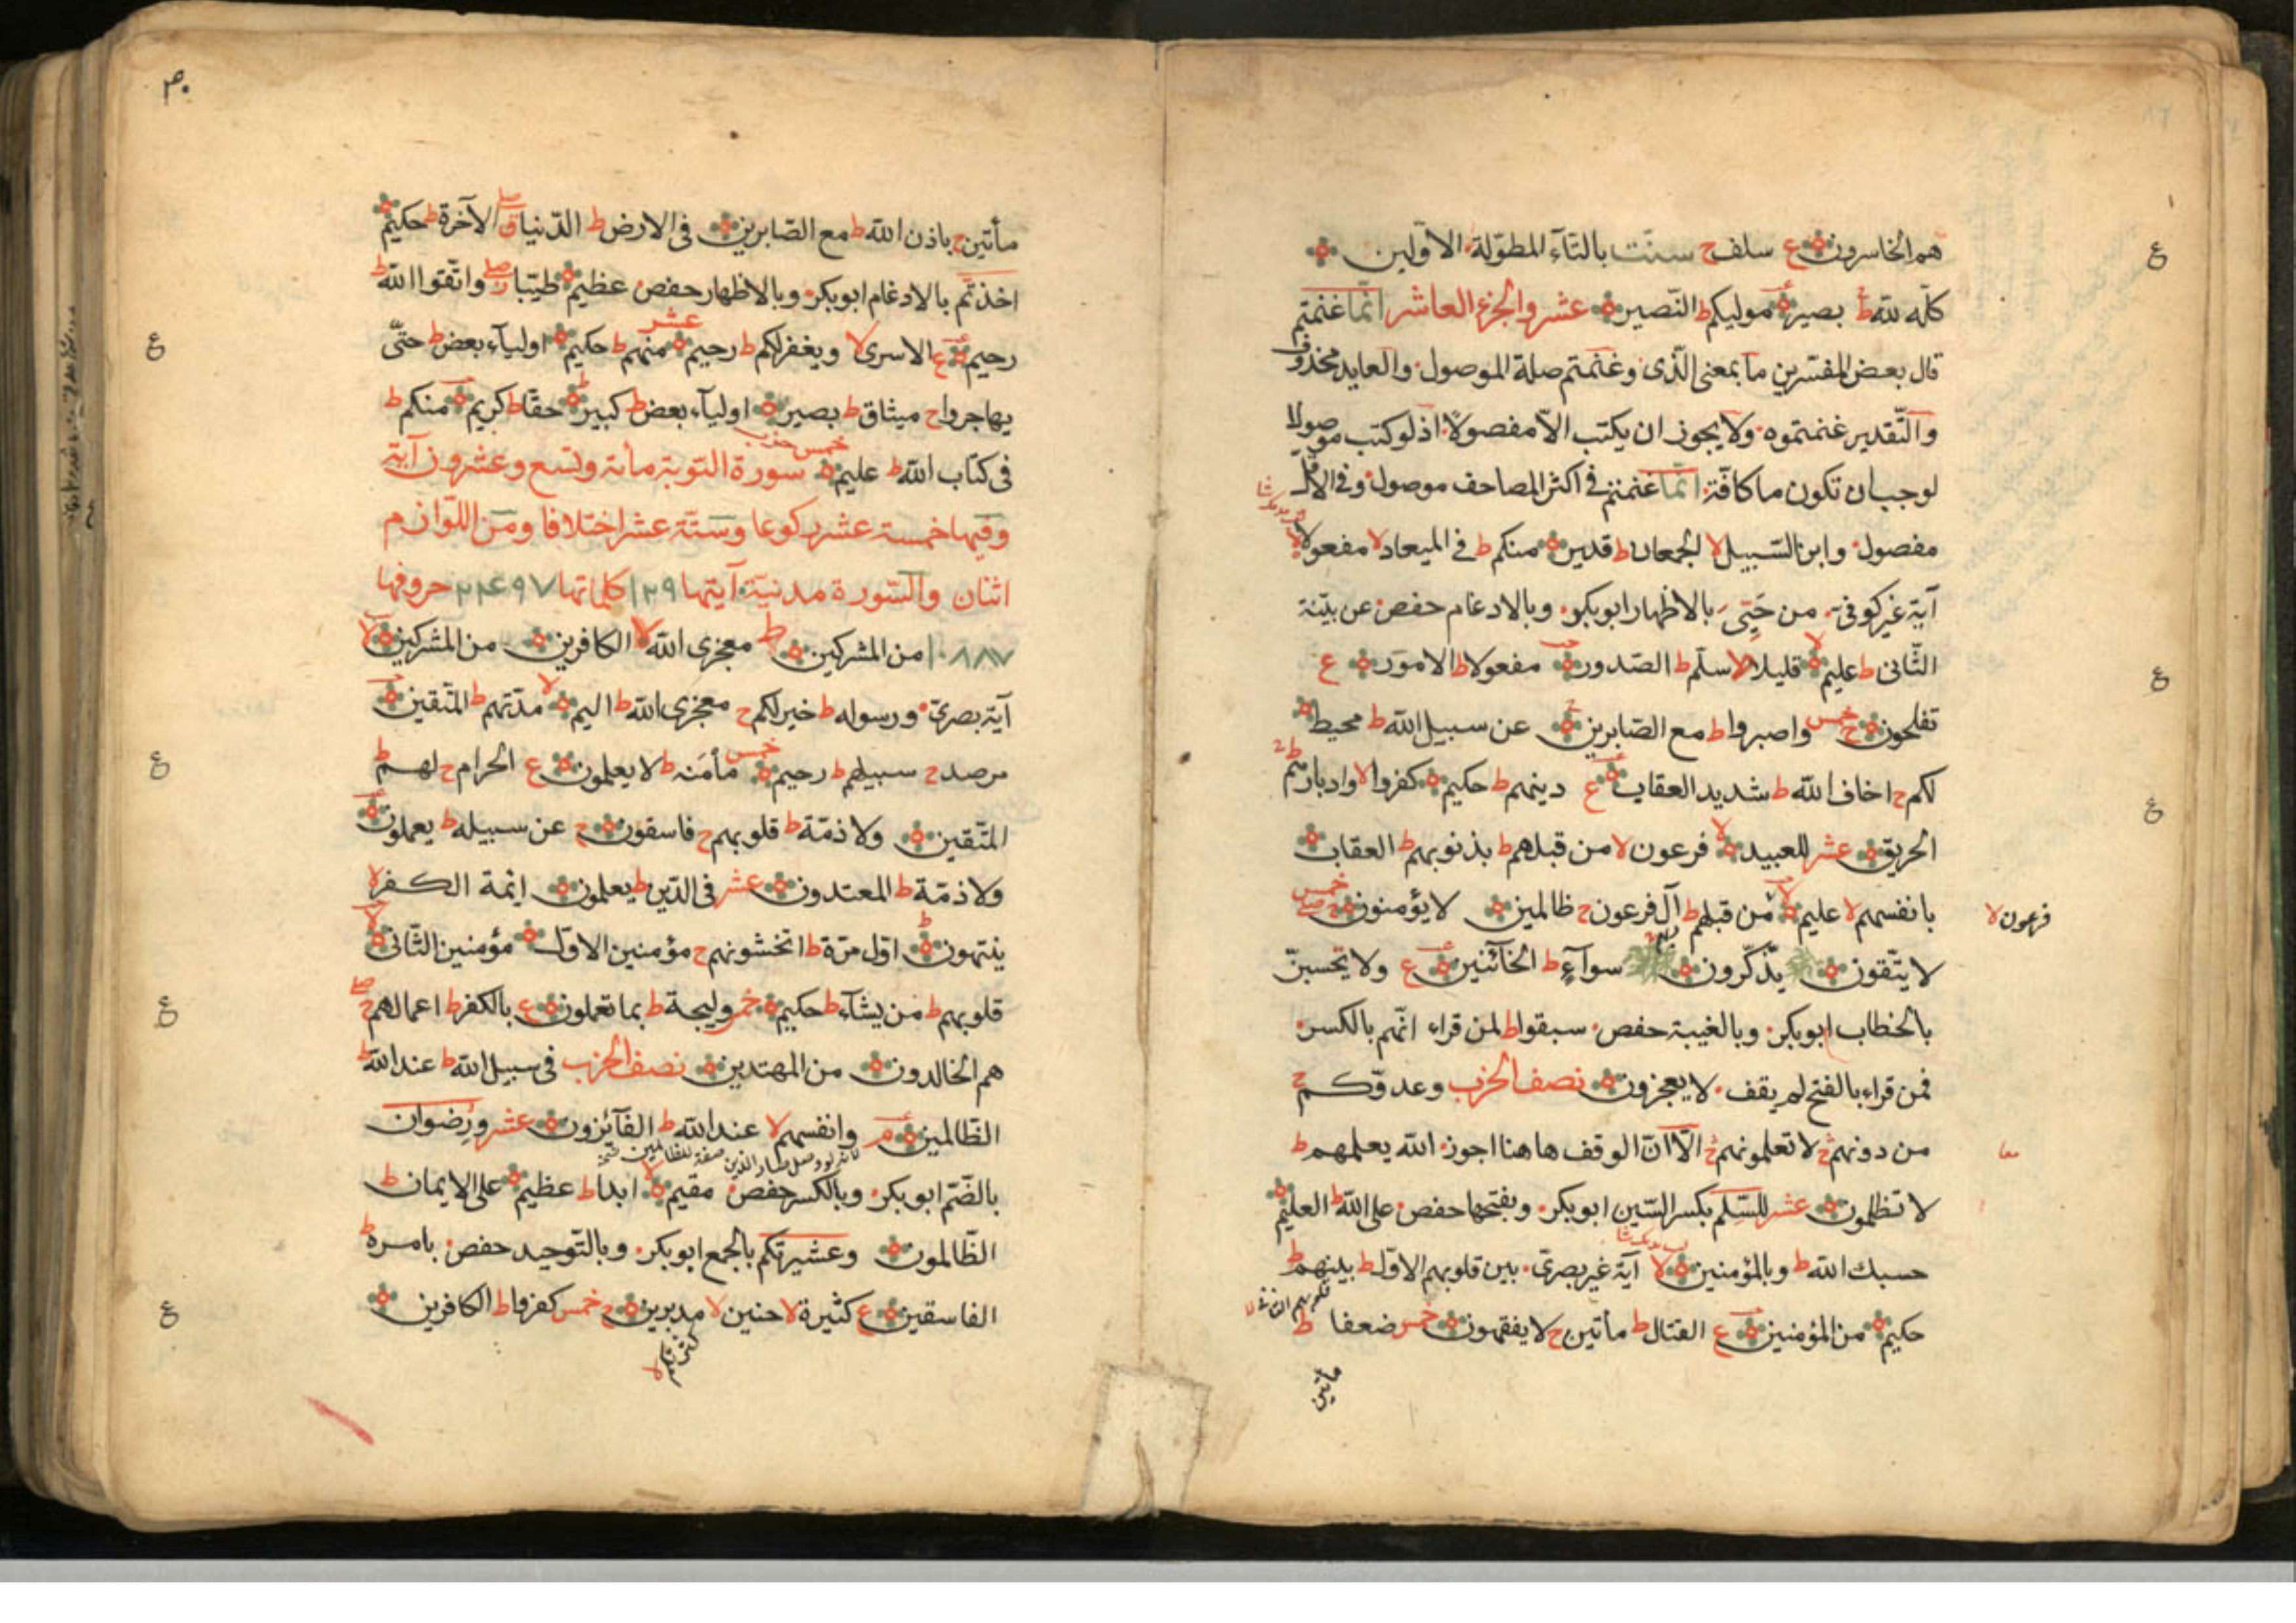 هم الخاسرون ع سلف ح سنّت بالتآء المطوّلة الاوّلين
كلّه للّه ط بصير موليكم ط النّصير عشر والجزء العاشر انّما غنمتم
قال بعض المفسّرين ما بمعنى الّذى وغنمتم صلة الموصول والعايد محذوف
والتّقدير غنمتموه ولا يجوز ان يكتب الاّ مفصولا اذ لو كتب موصولا
لوجب ان تكون ما كافّة انّما غنمتم فى اكثر المصاحف موصول وفى الاقلّ
مفصول وابن السّبيل لا الجمعان ط قدير منكم ط فى الميعاد لا مفعولا لا
آية غير كوفى من حيى بالاظهار ابو بكر وبالادغام حفص عن بيّنة
الثّانى ط عليم لا قليلا لا سلّم ط الصّدور مفعولا ط الامور ع
تفلحون ح خمس واصبروا ط مع الصّابرين ح عن سبيل اللّه ط محيط
لكم ح اخاف اللّه ط شديد العقاب ع دينهم ط حكيم كفروا لا وادبارهم ح
الحريق عشر للعبيد لا فرعون لا من قبلهم ط بذنوبهم ط العقاب
بانفسهم لا عليم لا من قبلهم ط آل فرعون ح ظالمين لا يؤمنون ح خمس
فرعون لا
لا يتّقون يذّكّرون سوآء ط الخآئنين ع ولا تحسبنّ
بالخطاب ابو بكر وبالغيبة حفص سبقوا ط لمن قراء انّهم بالكسر
فمن قراء بالفتح لم يقف لا يعجزون نصف الحزب وعدوّكم ح
من دونهم ح لا تعلمونهم ح الاّ انّ الوقف هاهنا اجوز اللّه يعلمهم ط
لا تظلمون عشر للسّلم بكسر السّين ابو بكر وبفتحها حفص على اللّه ط العليم
حسبك اللّه ط وبالمؤمنين لا آية غير بصرىّ بين قلوبهم الاوّل ط بينهم ط
حكيم من المؤمنين ع القتال ط مأتين ح لا يفقهون خمس ضعفا ط
مأتين
مأتين ح باذن اللّه ط مع الصّابرين فى الارض ط الدّنيا ق صلى الآخرة ط حكيم
اخذتم بالادغام ابو بكر وبالاظهار حفص عظيم طيّبا ز صلى واتّقوا اللّه ط
رحيم ع الاسرى لا ويغفر لكم ط رحيم عشر منهم ط حكيم اوليآء بعض ط حتّى
يهاجروا ح ميثاق ط بصير اوليآء بعض ط كبير ط حقّا ط كريم منكم ط
فى كتاب اللّه ط عليم خمس حزب سورة التوبة مائة وتسع وعشرون آية
وفيها خمسة عشر ركوعا وستّة عشر اختلافا ومن اللّوازم
اثنان والسّورة مدنيّة آيتها ١٢٩ كلماتها ٢٤٩٧ حروفها
١٠٨٨٧ من المشركين ط معجزى اللّه لا الكافرين من المشركين لا
آية بصرىّ ورسوله ط خير لكم ح معجزى اللّه ط اليم لا مدّتهم ط المتّقين
مرصد ح سبيلهم ط رحيم خمس مأمنه ط لا يعلمون ع الحرام ح لهم ط
المتّقين ولا ذمّة ط قلوبهم ح فاسقون ح عن سبيله ط يعملون
ولا ذمّة ط المعتدون عشر فى الدّين ط يعلمون ائمة الكفر لا
ينتهون اوّل مرّة ط اتخشونهم ح مؤمنين الاوّل مؤمنين الثّانى لا
قلوبهم ط من يشآء ط حكيم خمس وليجة ط بما تعملون ع بالكفر ط اعمالهم ح صلى
هم الخالدون من المهتدين نصف الحزب فى سبيل اللّه ط عند اللّه ط
الظّالمين م وانفسهم لا عند اللّه ط الفآئزون عشر ورضوان
بالضّم ابو بكر وبالكسر حفص مقيم لا ابدا ط عظيم على الايمان ط
الظّالمون وعشيرتكم بالجمع ابو بكر وبالتّوحيد حفص بامره ط
الفاسقين ع كثيرة لا حنين لا مدبرين ح خمس كفروا ط الكافرين